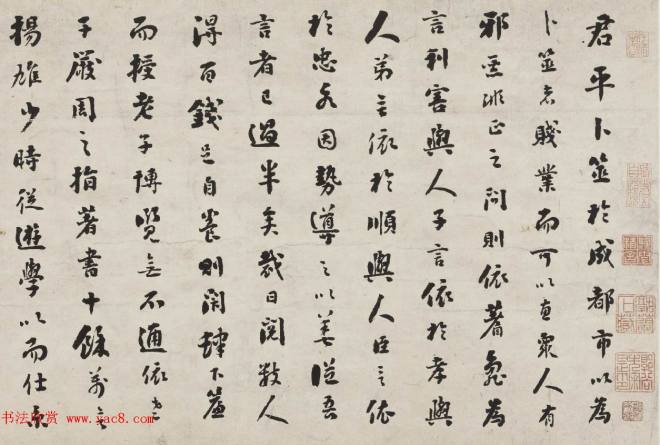 君平卜筮於成都市以為
卜筮者賤業而可以惠眾人有
邪惡非正之問則依蓍龜為
言利害與人子言依於孝與
人弟言依於順與人臣言依
於忠各因勢導之以善從吾
言者已過半矣裁日閱數人
得百錢足自養則閉肆下簾
而授老子博覽亡不通依老
子嚴周之指著書十餘萬言
楊雄少時從遊學以而仕京
书法欣赏 www.yac8.com